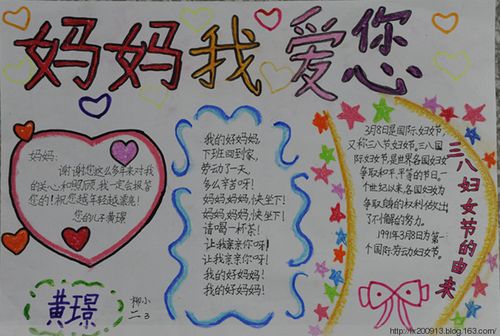 妈妈我爱您
妈妈:
谢谢您这么多年来对我
的关心和照顾,我一定会报答
您的!祝您越年轻越漂亮!
您的儿子黄璟
我的好妈妈,
下班回到家,
劳动了一天,
多么辛苦呀!
妈妈妈妈,快坐下!
妈妈,妈妈,快坐下!
请喝一杯茶!
让我亲亲你呀!
让我亲亲你呀!
我的好妈妈!
我的好妈妈!
3月8日是国际妇女节,
又称三八节妇女节。三八国
际妇女节,是世界各国妇女
争取和平、平等的节日。一
个世纪以来,各国妇女为
争取她们的权利做出
了不懈的努力。
1991年3月8日为第一
个国际劳动妇女节。
三八妇女节的由来
黄璟
柳小
二3
http://lx200913.blog.163.com/